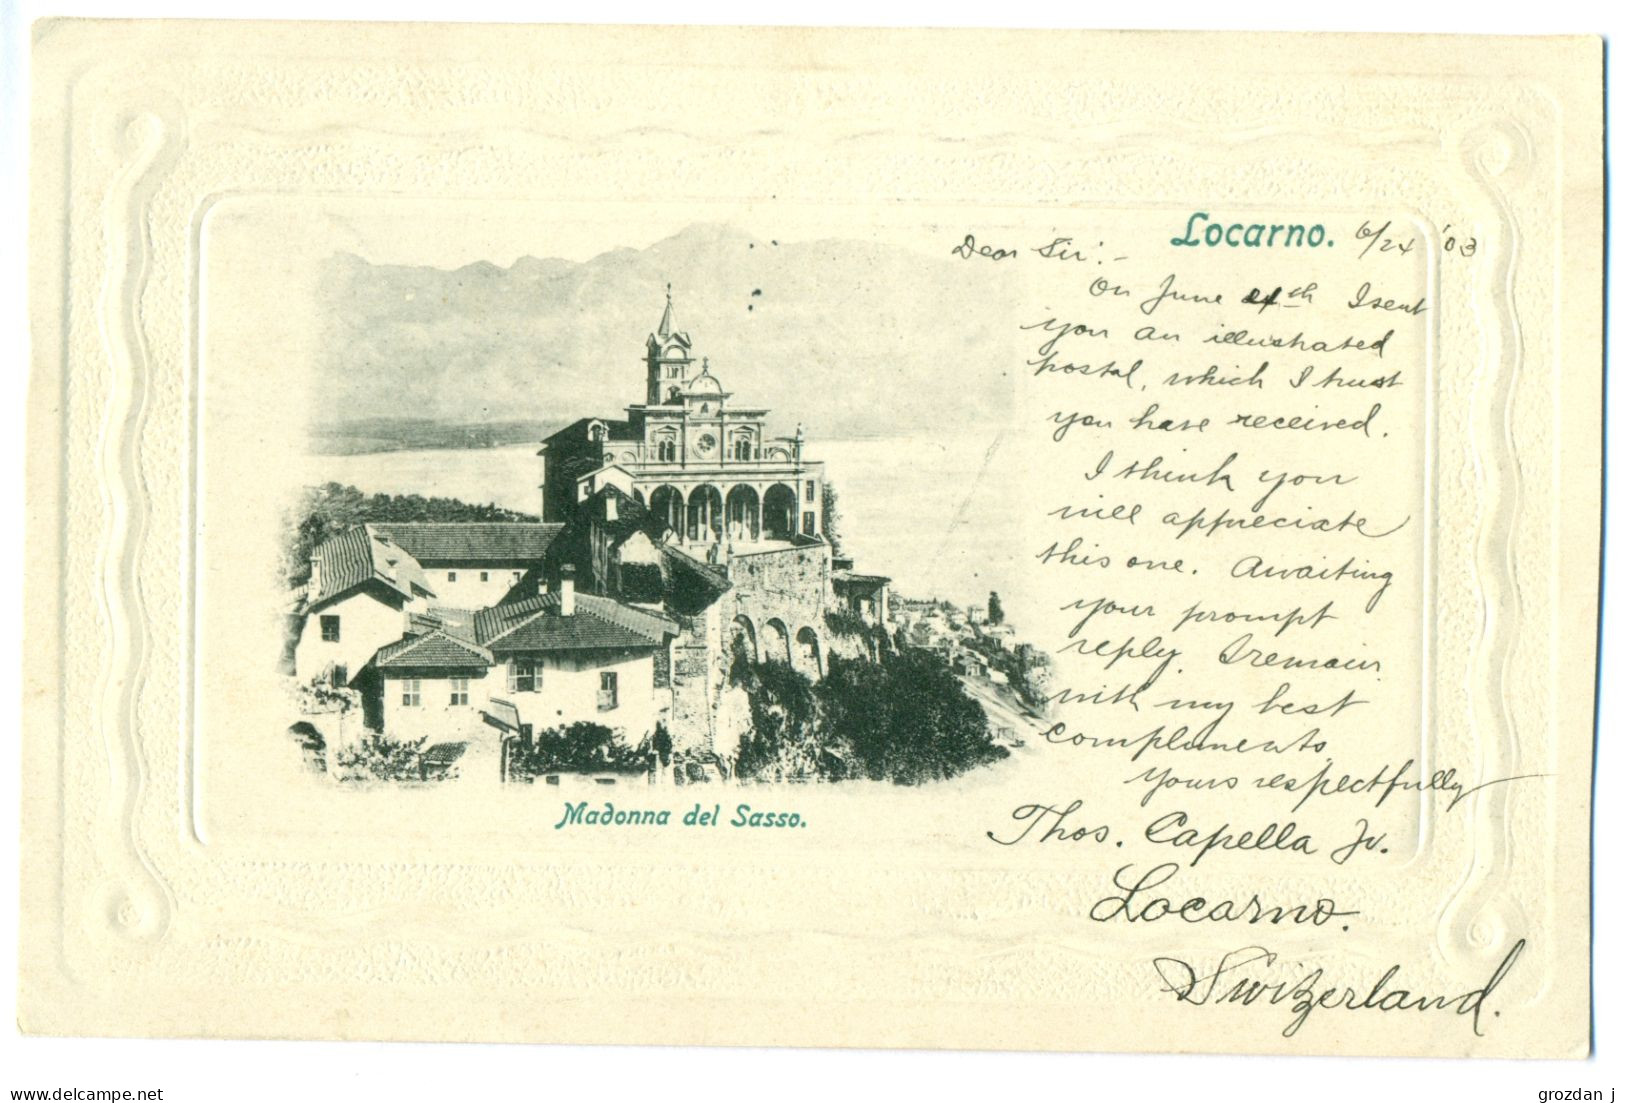 Locarno. 6/24 '03
Dear Sir:-
On June 4th I sent
you an illustrated
postal, which I trust
you have received.
I think you
will appreciate
this one. Awaiting
your prompt
reply. I remain
with my best
compliments,
Yours respectfully
Thos. Capella Jr.
Locarno.
Switzerland.
Madonna del Sasso.
grozdan j